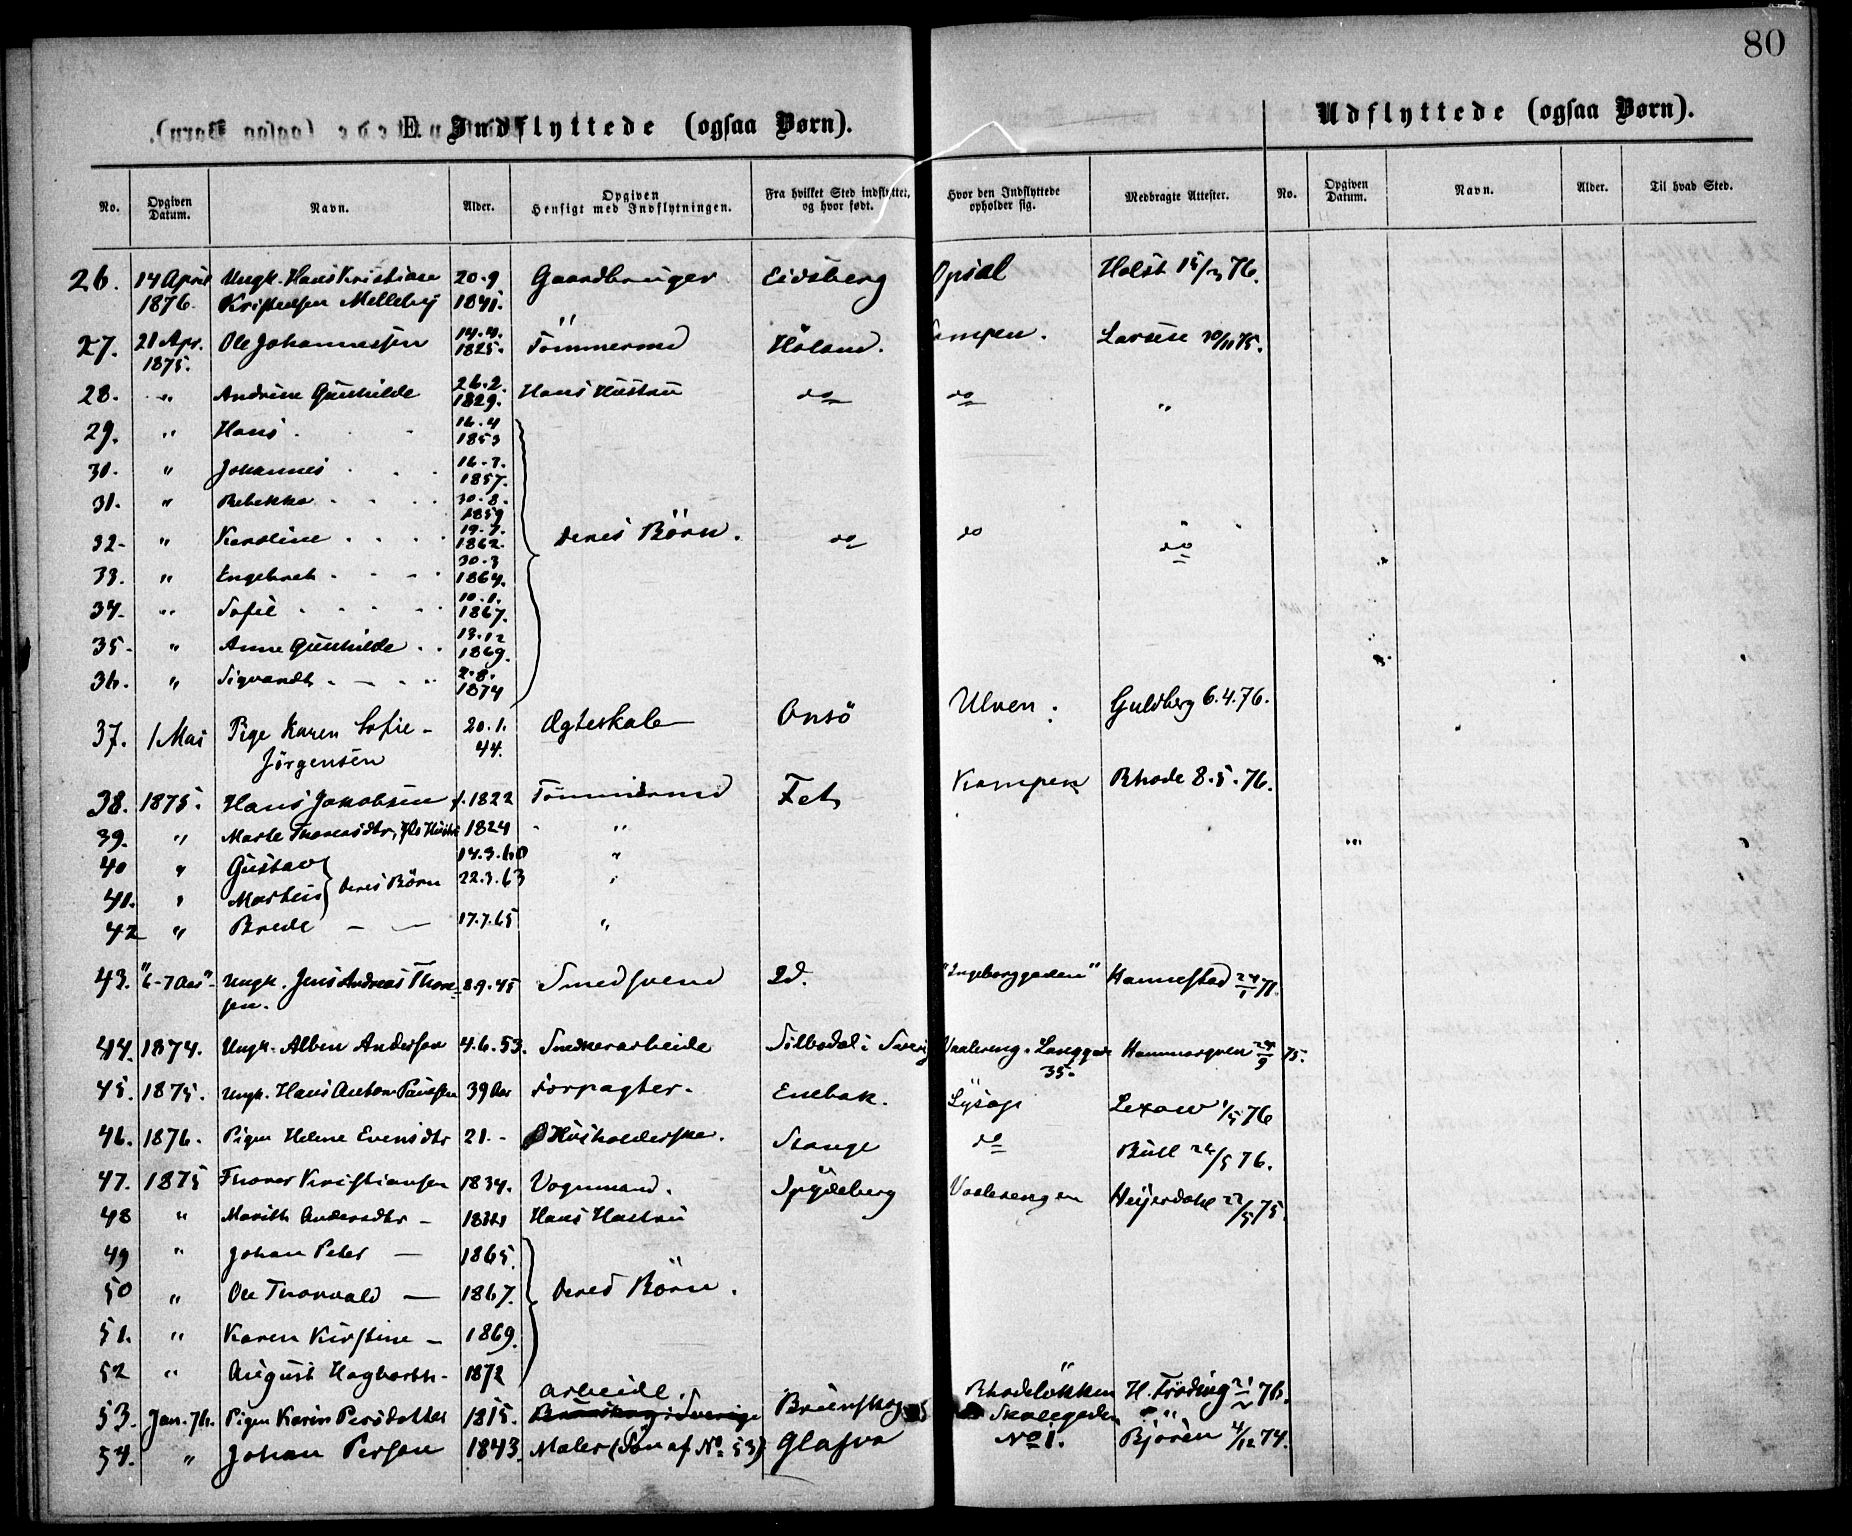 80
E. Indflyttede (ogsaa Børn). Udflyttede (ogsaa Børn).
No. Opgiven Datum. Navn. Alder. Opgiven Hensigt med Indflytningen. Fra hvilket Sted indflyttet, og hvor født. Hvor den Indflyttede opholder sig. Medbragte Attester. No. Opgiven Datum. Navn. Alder. Til hvad Sted.
26. 14 April Ungk. Hans Kristian 20.9 Gaardbruger Eidsberg Opsal Holst 76.
1876. Kristensen Melleby 1841.
27. 21 Apr. Ole Johannessen 14.4. Tömmermd Höland. Kampen. Larsen 75.
1875. 1825.
28. " Andrine Gunhilde 26.2. 1829. Hans Hustru do do "
29. " Hans 16.4 1853
30. " Johannes 16.7. 1857.
31. " Rebekka 30.8. 1859
32. " Karoline 19.7. 1862. deres Börn. do do do
33. " Engebret 30.3 1864.
34. " Sofie 10.1. 1867.
35. " Anne Gunhilde 13.12 1869.
36. " Sigvardt 2.8. 1874
37. 1 Mai Pige Karen Sofie 20.1. Ægteskab Onsö Ulven. Guldberg 6.4.76.
Jörgensen 44.
38. 1875. Hans Jakobsen f. 1822 Tömmermd Fet Kampen Rhode 8.5.76.
39. " Marte Thoresdtr, Hs Hustr 1824 "
40 " Gustav 14.3.60 "
41. " Martin } deres Börn 22.3.63 "
42 " Brede 17.7.65 "
43. "6-7 Aar" Ungk. Jens Andreas Thore- 8.9.45 Smedsvend do. "Ingeborggaden" Hannestad 24/1 71.
sen.
44. 1874. Ungk. Albin Andersen 4.6.53. Snekerarbeide Silbodal i Sverig Vaalereng. Langgade Hammargren 75.
35.
45. 1875. Ungk. Hans Anton Paulsen 39 Aar Forpagter. Enebak. Lysop Lexow 1/5 76
46. 1876. Pigen Helene Evensdtr 21.- Husholderske. Stange do Bull 76.
47. 1875 Thorer Kristiansen 1834. Vognmand. Spydeberg Vaalerengen Heyerdahl 22/5 75.
48 " Marith Andersdtr Hans Hustru
49 " Johan Peter 1865.
50 " Ole Thorvald 1867. deres Börn.
51. " Karen Kirstine 1869.
52 " August Hagbarth 1872
53. Jan. 76. Pigen Karin Persdotter 1815. arbeide. Brunskog i Sverige Brunskog Rhodelökken H. Fröding 76.
Skolegaden
54. " Johan Persson 1843. Maler (Sön af No 53) Glafva No 1. Bjorèn 74.